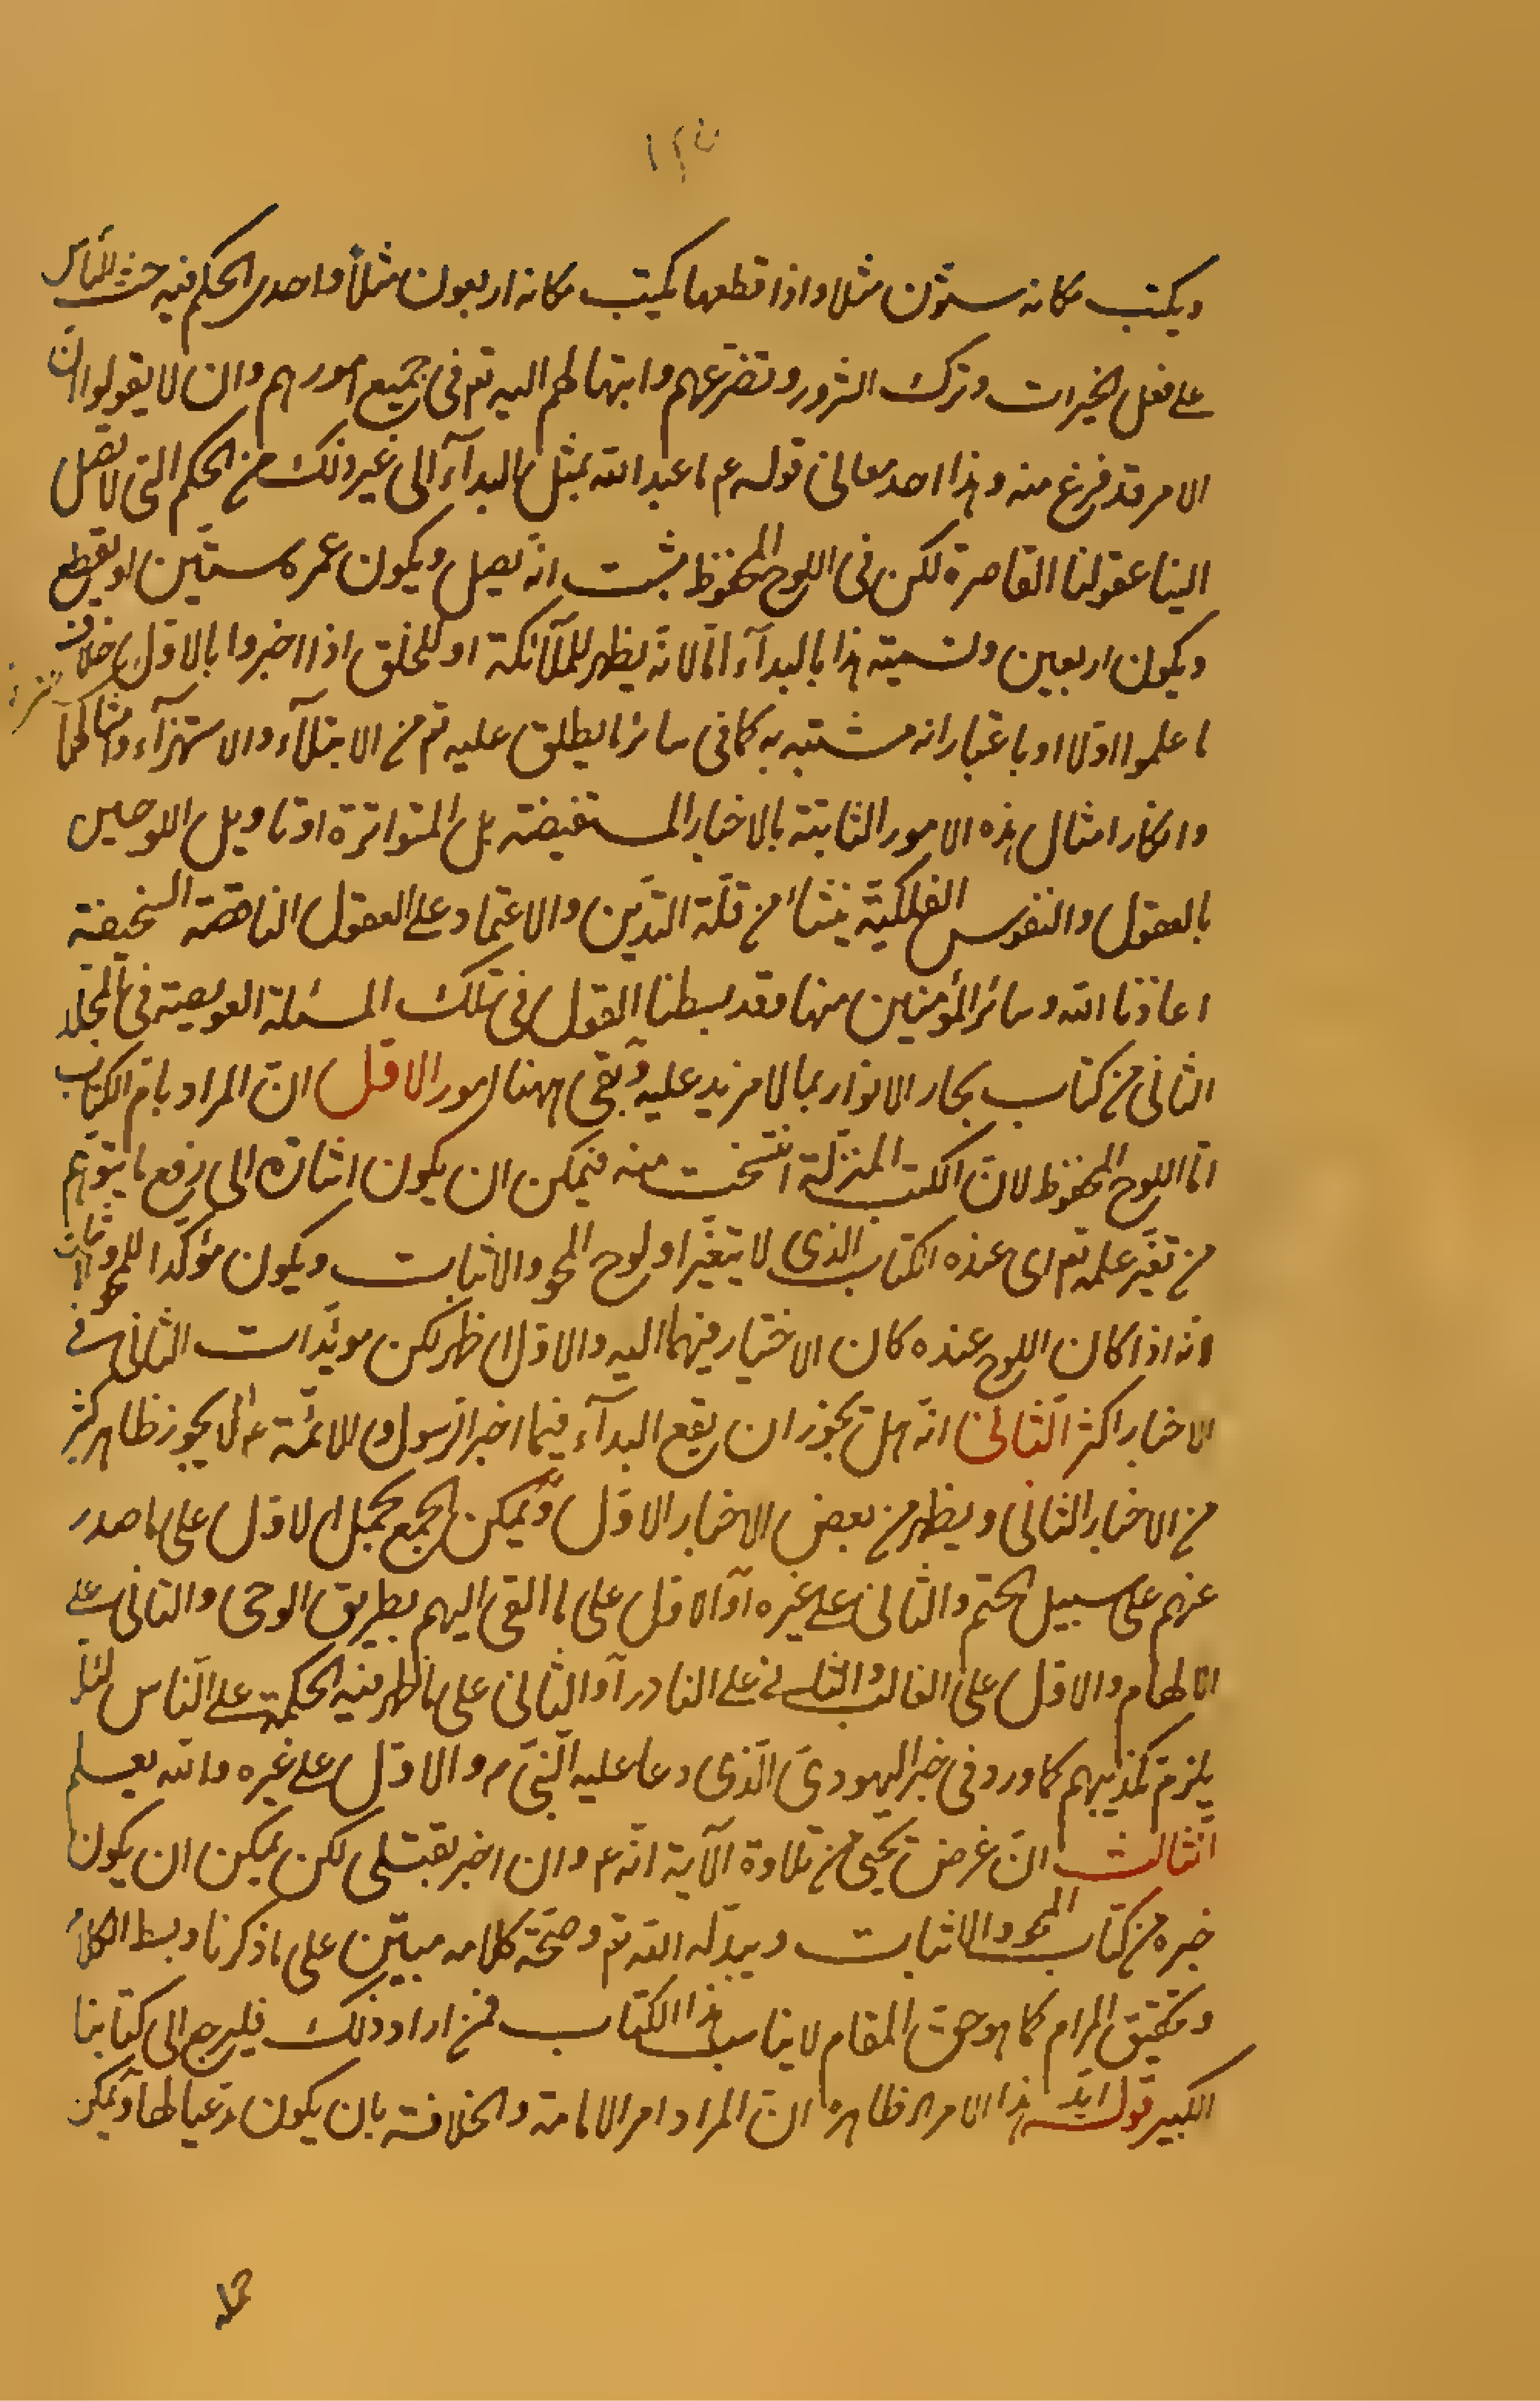 ويكتب مكانه ستون مثلا واذا قطعها يكتب مكانه اربعون مثلاً واحدى الحكم فيه حث الناس
على فعل الخيرات وترك الشرور وتضرعهم وابتهالهم اليه تع في جميع امورهم وان لا يقولوا انّ
الامر قد فرغ منه وهذا احد معانى قوله ع ما عبد الله بمثل البدآء الى غير ذلك من الحكم التي لا تصل
الينا عقولنا القاصرة لكن فى اللوح المحفوظ مثبت انّه يصل ويكون عمره ستّين او يقطع
ويكون اربعين وتسمية هذا بالبدآء امّا لانّه يظهر للملآئكة او للخلق اذا اخبروا بالاوّل خلاف
ما علموا اولا او باعتبار انه مشتبه به كما فى سائر ما يطلق عليه تع من الابتلآء والاستهزآء وامثالهما
وانكار امثال هذه الامور الثابتة بالاخبار المستفيضة بل المتواترة او تاويل اللوحين
بالعقول والنفوس الفلكيّة ينشأ من قلّة التديّن والاعتماد على العقول الناقصة السخيفة
اعاذنا الله وسائر المؤمنين منها وقد بسطنا القول فى تلك المسئلة العويصة فى المجلد
الثانى من كتاب بحار الانوار بما لا مزيد عليه وبقى ههنا امور الاوّل انّ المراد بام الكتاب
امّا اللوح المحفوظ لانّ الكتب المنزلة انتسخت منه فيمكن ان يكون اشارة الى رفع ما يتوهم
من تغيّر علمه تع اى عنده الكتاب الذى لا يتغيّر او لوح المحو والاثبات ويكون مؤكّدا للمحو والاثبات
انه اذا كان اللوح عنده كان الاختيار فيهما اليه والاوّل اظهر لكن مويّدات الثانى فى
الاخبار اكثر الثانى انّه هل يجوز ان يقع البدآء فيما اخبر الرسول والائمّة ع ام لا يجوز ظاهر كثير
من الاخبار الثانى ويظهر من بعض الاخبار الاوّل ويمكن الجمع بحمل الاوّل على ما صدر
عنهم على سبيل الحتم والثانى على غيره او الاوّل على ما القى اليهم بطريق الوحى والثانى على
الالهام والاوّل على الغالب والثانى على النادر او الثانى على ما ظهر فيه الحكمة على النّاس لئلّا
يلزم تكذيبهم كما ورد فى خبر اليهودىّ الّذى دعا عليه النّبىّ ص والاوّل على غيره والله يعلم
الثالث انّ غرض يحيى من تلاوة الآية انّه ع وان اخبر بقتلى لكن يمكن ان يكون
خبره من كتاب المحو والاثبات ويبدّله الله تع وصحّة كلامه مبتن على ما ذكرنا وبسط الكلام
وتحقيق المرام كما هو حق المقام لا يناسب هذا الكتاب فمن اراد ذلك فليرجع الى كتابنا
الكبير قوله ايّد هذا الامر الظاهر انّ المراد امر الامامة والخلافة بان يكون مدّعيا لها ويمكن